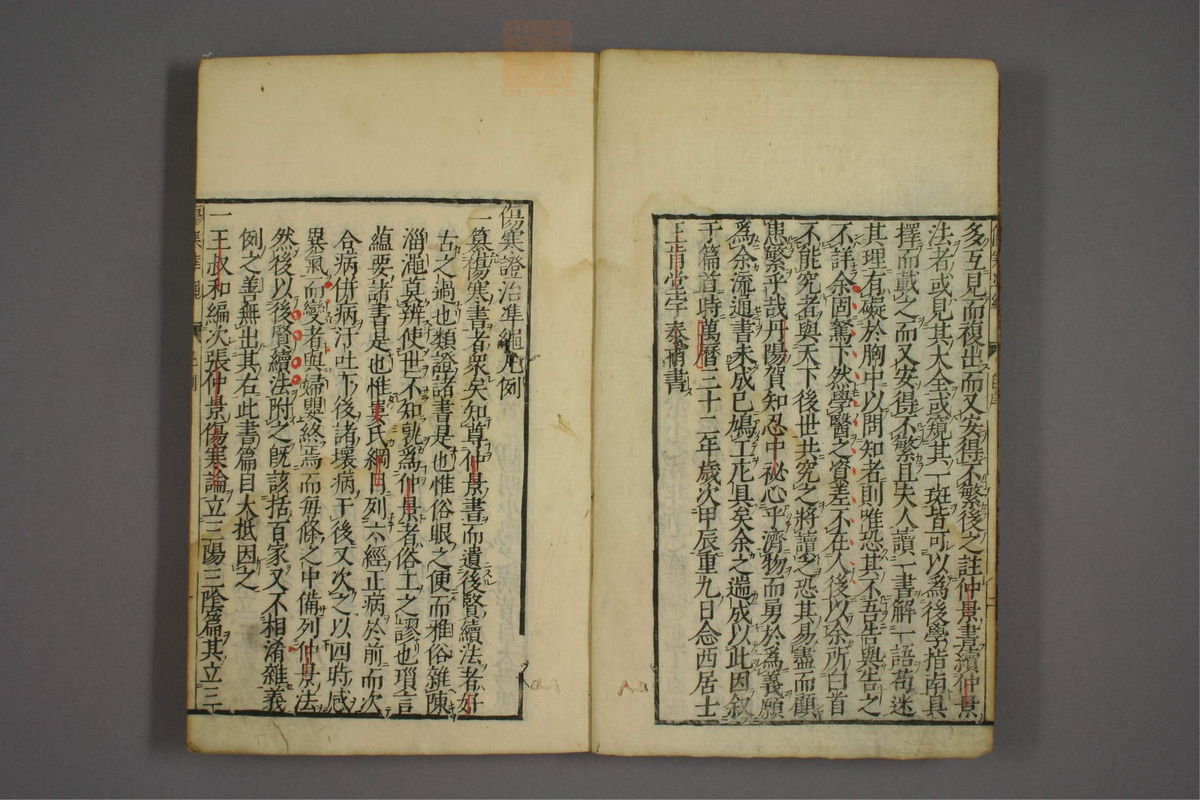 多互見而複出而又安得不繁後之註仲景書續仲景
法者或見其大全或窺其一斑皆可以為後學指南具
擇而載之而又安得不繁且夫人讀一書解一語苟迷
其理有礙於胸中以問知者則唯恐其不吾告與告之
不詳余固駑下然學醫之資差不在人後以余所白首
不能究者與天下後世共究之將讀之恐其易盡而顧
患繁乎哉丹陽賀知忍中祕心乎濟物而勇於為義願
為余流通書未成已鳩工庀具矣余之遄成以此因敘
于篇首時萬曆三十二年歲次甲辰重九日念西居士
王肯堂宇泰甫書
傷寒證治準繩凡例
一纂傷寒書者衆矣知尊仲景書而遺後賢續法者好
古之過也類證諸書是也惟俗眼之便而雅俗雜陳
淄澠莫辨使世不知孰為仲景者俗工之謬也瑣言
蘊要諸書是也惟婁氏綱目列六經正病於前而次
合病併病汗吐下後諸壞病于後又次之以四時感
異氣而變者與婦嬰終焉而每條之中備列仲景法
然後以後賢續法附之既該括百家又不相淆雜義
例之善無出其右此書篇目大抵因之
一王叔和編次張仲景傷寒論立三陽三陰篇其立三